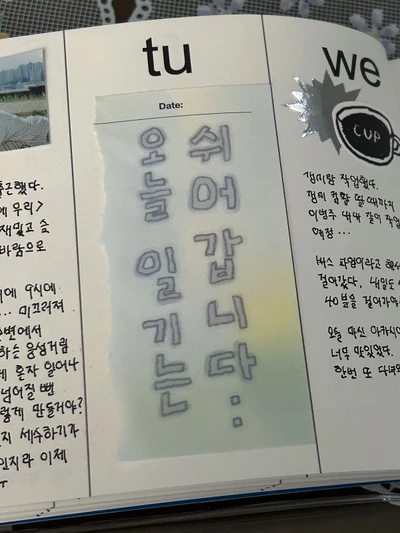 출근했다.
에 우리>
재밌고 슬
바람으로
에 9시에
... 미끄러져
변에서
하는 웅성거림
게 혼자 일어나
넘어질 뻔
렇게 만들거야?
지 세수하기가
인지라 이제
tu
Date:
오늘 일기는
쉬어 갑니다..
we
CUP
잼미랑 작업했다.
잼미 컴활 딸 때까지
이번주 내내 같이 작업
예정 ...
버스 파업이라고 해서
걸어갔다. 내일도
40분을 걸어가야
오늘 마신 아카시아
너무 맛있었다.
한번 또 다녀와